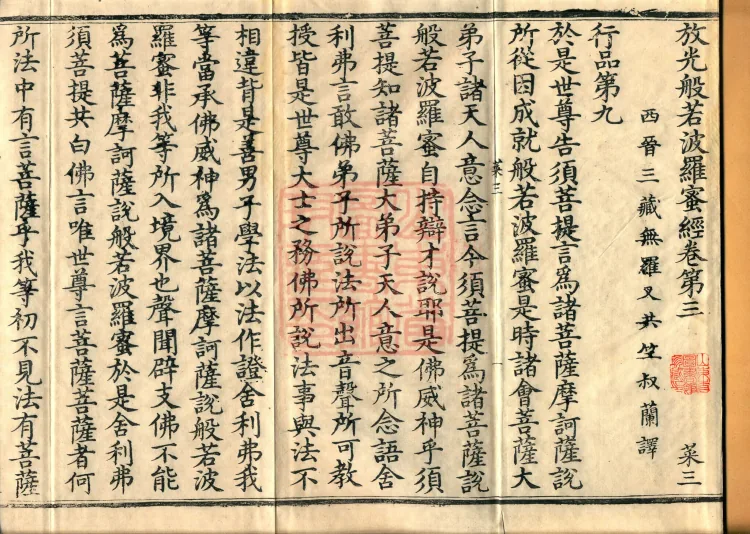 放光般若波羅蜜經卷第三 菜三
西晉三藏無羅叉共竺叔蘭譯
行品第九
於是世尊告須菩提言為諸菩薩摩訶薩說
所從因成就般若波羅蜜是時諸會菩薩大
弟子諸天人意念言今須菩提為諸菩薩說
菜三
般若波羅蜜自持辯才說耶是佛威神乎須
菩提知諸菩薩大弟子天人意之所念語舍
利弗言敢佛弟子所說法所出音聲所可教
授皆是世尊大士之務佛所說法事與法不
相違背是善男子學法以法作證舍利弗我
等當承佛威神為諸菩薩摩訶薩說般若波
羅蜜非我等所入境界也聲聞辟支佛不能
為菩薩摩訶薩說般若波羅蜜於是舍利弗
須菩提共白佛言唯世尊言菩薩菩薩者何
所法中有言菩薩乎我等初不見法有菩薩